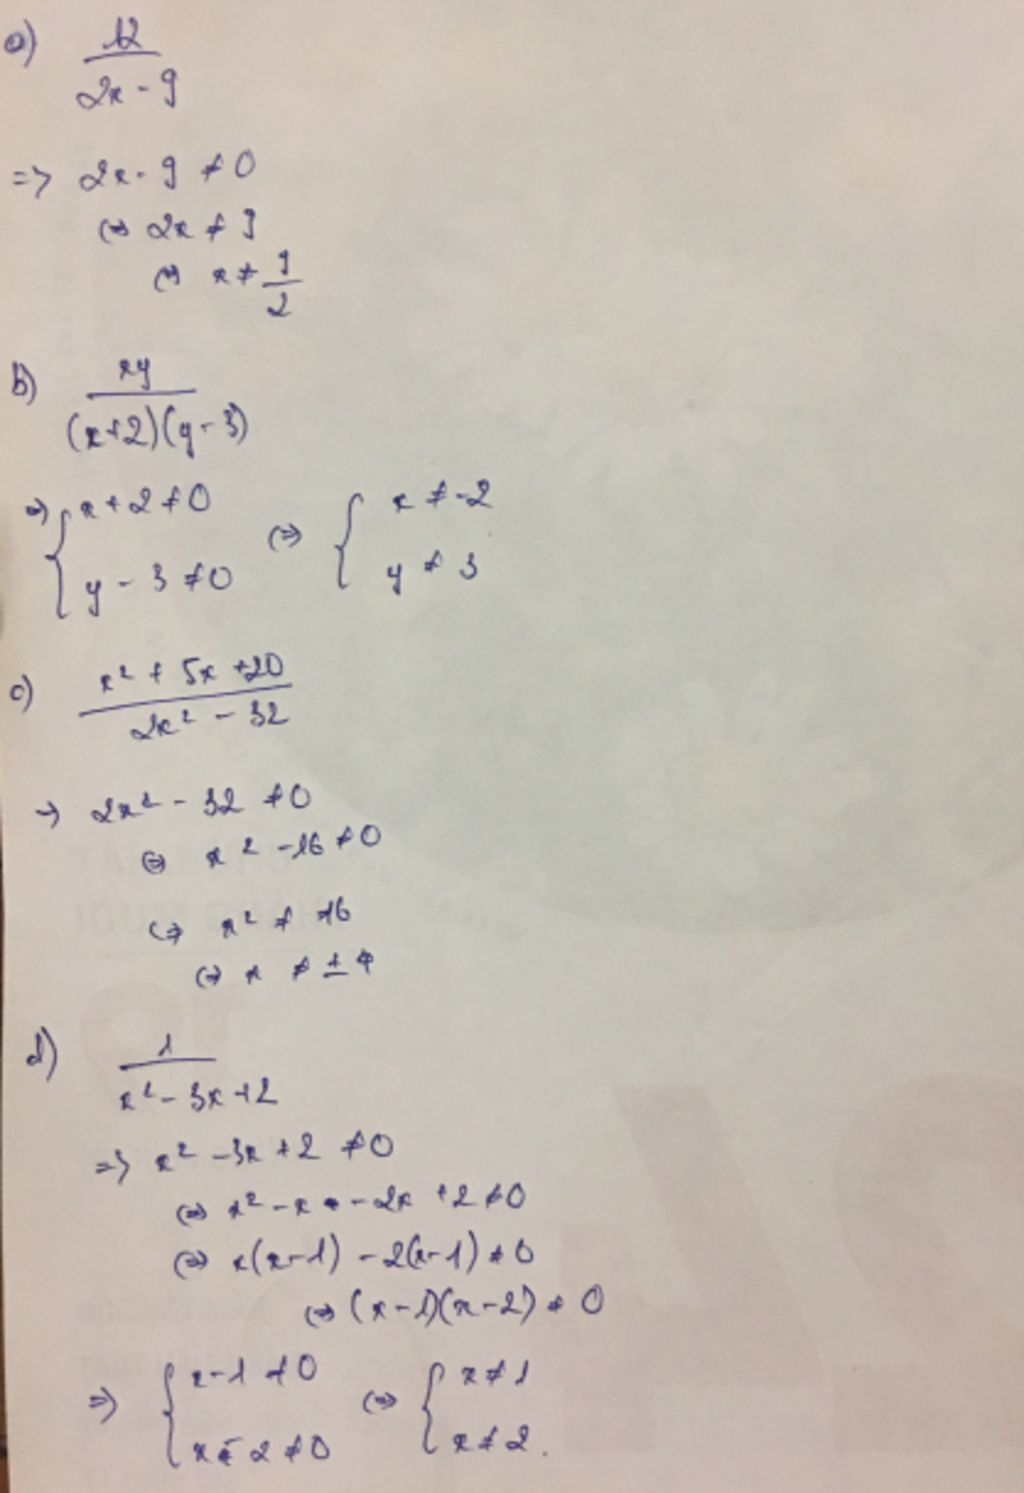 a) 12/(2x - 9)
=> 2x - 9 ≠ 0
<=> 2x ≠ 9
<=> x ≠ 9/2
b) xy/((x+2)(y-3))
=> { x + 2 ≠ 0 <=> { x ≠ -2
y - 3 ≠ 0 y ≠ 3
c) (x² + 5x + 20)/(2x² - 32)
=> 2x² - 32 ≠ 0
<=> x² - 16 ≠ 0
<=> x² ≠ 16
<=> x ≠ ± 4
d) 1/(x² - 3x + 2)
=> x² - 3x + 2 ≠ 0
<=> x² - x - 2x + 2 ≠ 0
<=> x(x-1) - 2(x-1) ≠ 0
<=> (x-1)(x-2) ≠ 0
=> { x - 1 ≠ 0 <=> { x ≠ 1
x - 2 ≠ 0 x ≠ 2.